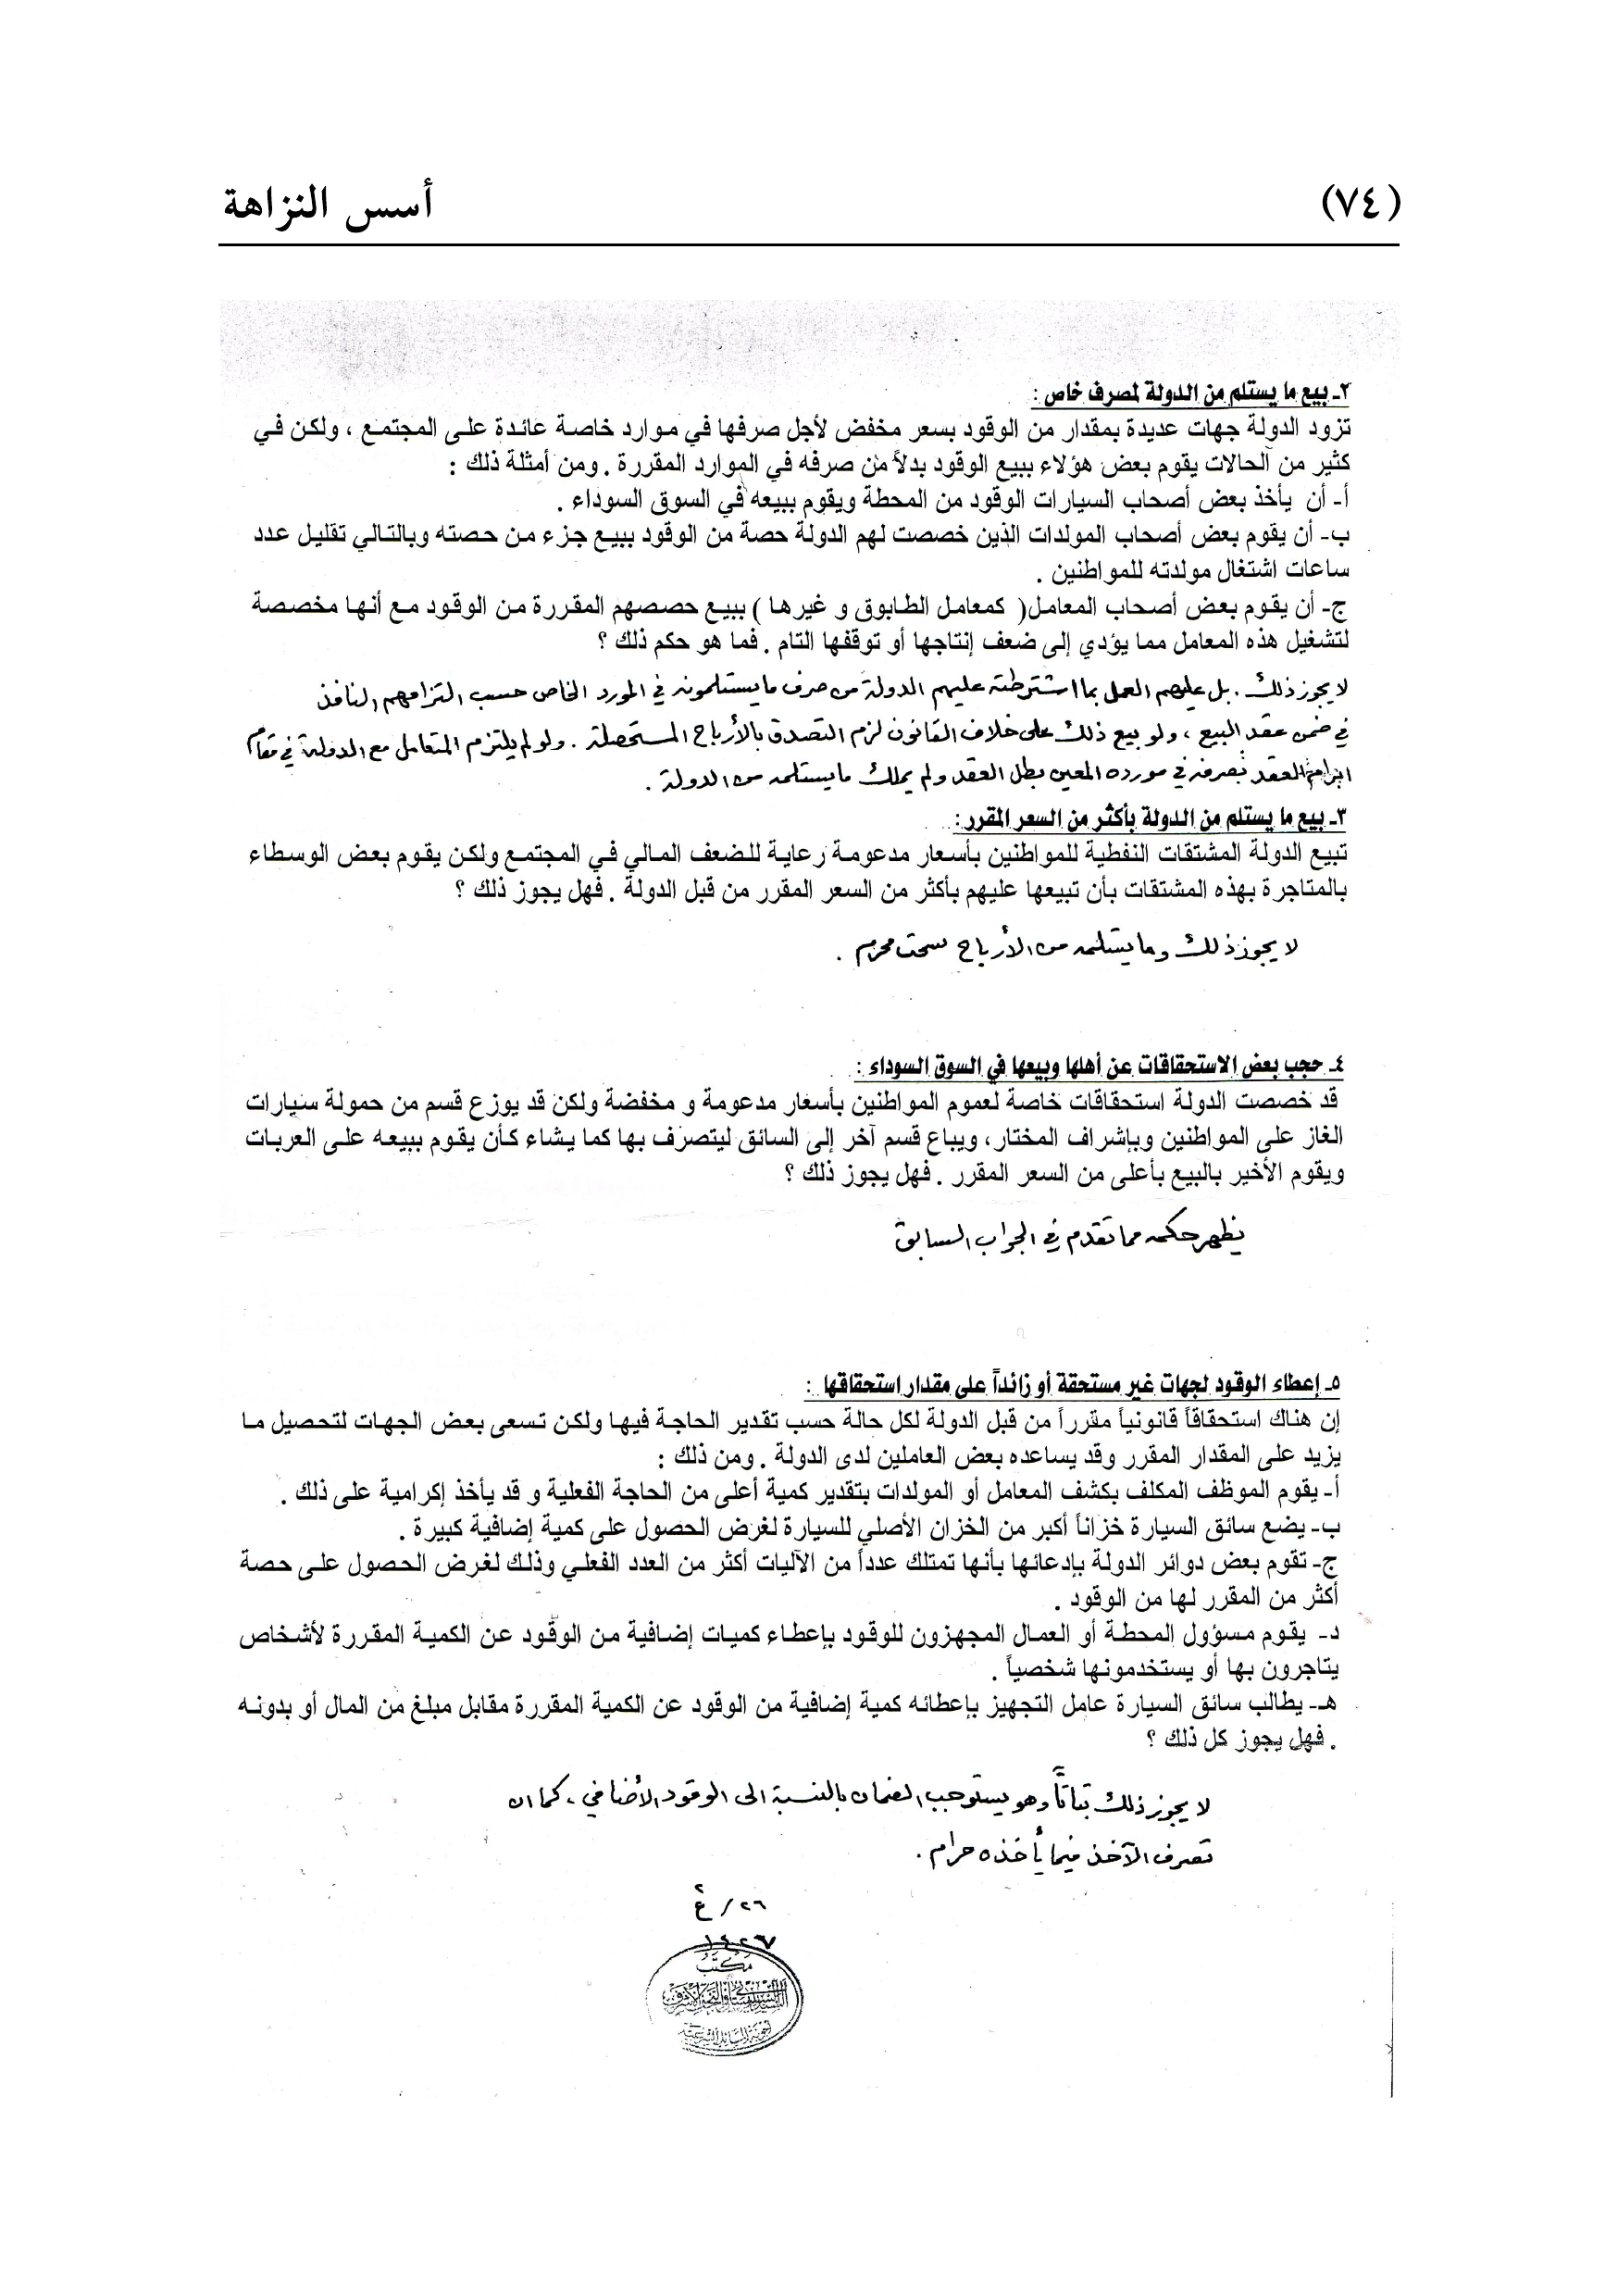 (٧٤)
أسس النزاهة
٢ـ بيع ما يستلم من الدولة لمصرف خاص :
تزود الدولة جهات عديدة بمقدار من الوقود بسعر مخفض لأجل صرفها في موارد خاصة عائدة على المجتمع ، ولكن في
كثير من الحالات يقوم بعض هؤلاء ببيع الوقود بدلاً من صرفه في الموارد المقررة . ومن أمثلة ذلك :
أ- أن يأخذ بعض أصحاب السيارات الوقود من المحطة ويقوم ببيعه في السوق السوداء .
ب- أن يقوم بعض أصحاب المولدات الذين خصصت لهم الدولة حصة من الوقود ببيع جزء من حصته وبالتالي تقليل عدد
ساعات اشتغال مولدته للمواطنين .
ج- أن يقوم بعض أصحاب المعامل( كمعامل الطابوق و غيرها ) ببيع حصصهم المقررة من الوقود مع أنها مخصصة
لتشغيل هذه المعامل مما يؤدي إلى ضعف إنتاجها أو توقفها التام . فما هو حكم ذلك ؟
لا يجوز ذلك . بل عليهم العمل بما اشترطته عليهم الدولة من صرف ما يستلمونه في المورد الخاص حسب التزامهم النافذ
في ضمن عقد البيع ، ولو بيع ذلك على خلاف القانون لزم التصدق بالأرباح المستحصلة . ولو لم يلتزم المتعامل مع الدولة في مقام
ابرام العقد بصرفه في مورده المعين بطل العقد ولم يملك ما يستلمه من الدولة .
٣ـ بيع ما يستلم من الدولة بأكثر من السعر المقرر :
تبيع الدولة المشتقات النفطية للمواطنين بأسعار مدعومة رعاية للضعف المالي في المجتمع ولكن يقوم بعض الوسطاء
بالمتاجرة بهذه المشتقات بأن تبيعها عليهم بأكثر من السعر المقرر من قبل الدولة . فهل يجوز ذلك ؟
لا يجوز ذلك وما يستلمه من الأرباح سحت محرم .
٤ـ حجب بعض الاستحقاقات عن أهلها وبيعها في السوق السوداء :
قد خصصت الدولة استحقاقات خاصة لعموم المواطنين بأسعار مدعومة و مخفضة ولكن قد يوزع قسم من حمولة سيارات
الغاز على المواطنين وبإشراف المختار، ويباع قسم آخر إلى السائق ليتصرف بها كما يشاء كأن يقوم ببيعه على العربات
ويقوم الأخير بالبيع بأعلى من السعر المقرر . فهل يجوز ذلك ؟
يظهر حكمه مما تقدم في الجواب السابق
٥ـ إعطاء الوقود لجهات غير مستحقة أو زائداً على مقدار استحقاقها :
إن هناك استحقاقاً قانونياً مقرراً من قبل الدولة لكل حالة حسب تقدير الحاجة فيها ولكن تسعى بعض الجهات لتحصيل ما
يزيد على المقدار المقرر وقد يساعده بعض العاملين لدى الدولة . ومن ذلك :
أ- يقوم الموظف المكلف بكشف المعامل أو المولدات بتقدير كمية أعلى من الحاجة الفعلية و قد يأخذ إكرامية على ذلك .
ب- يضع سائق السيارة خزاناً أكبر من الخزان الأصلي للسيارة لغرض الحصول على كمية إضافية كبيرة .
ج- تقوم بعض دوائر الدولة بإدعائها بأنها تمتلك عدداً من الآليات أكثر من العدد الفعلي وذلك لغرض الحصول على حصة
أكثر من المقرر لها من الوقود .
د- يقوم مسؤول المحطة أو العمال المجهزون للوقود بإعطاء كميات إضافية من الوقود عن الكمية المقررة لأشخاص
يتاجرون بها أو يستخدمونها شخصياً .
هـ- يطالب سائق السيارة عامل التجهيز بإعطائه كمية إضافية من الوقود عن الكمية المقررة مقابل مبلغ من المال أو بدونه
. فهل يجوز كل ذلك ؟
لا يجوز ذلك بتاتاً وهو يستوجب الضمان بالنسبة الى الوقود الأضافي ، كما ان
تصرف الآخذ فيما يأخذه حرام .
٢٦/ع٢
١٤٢٧
مكتب